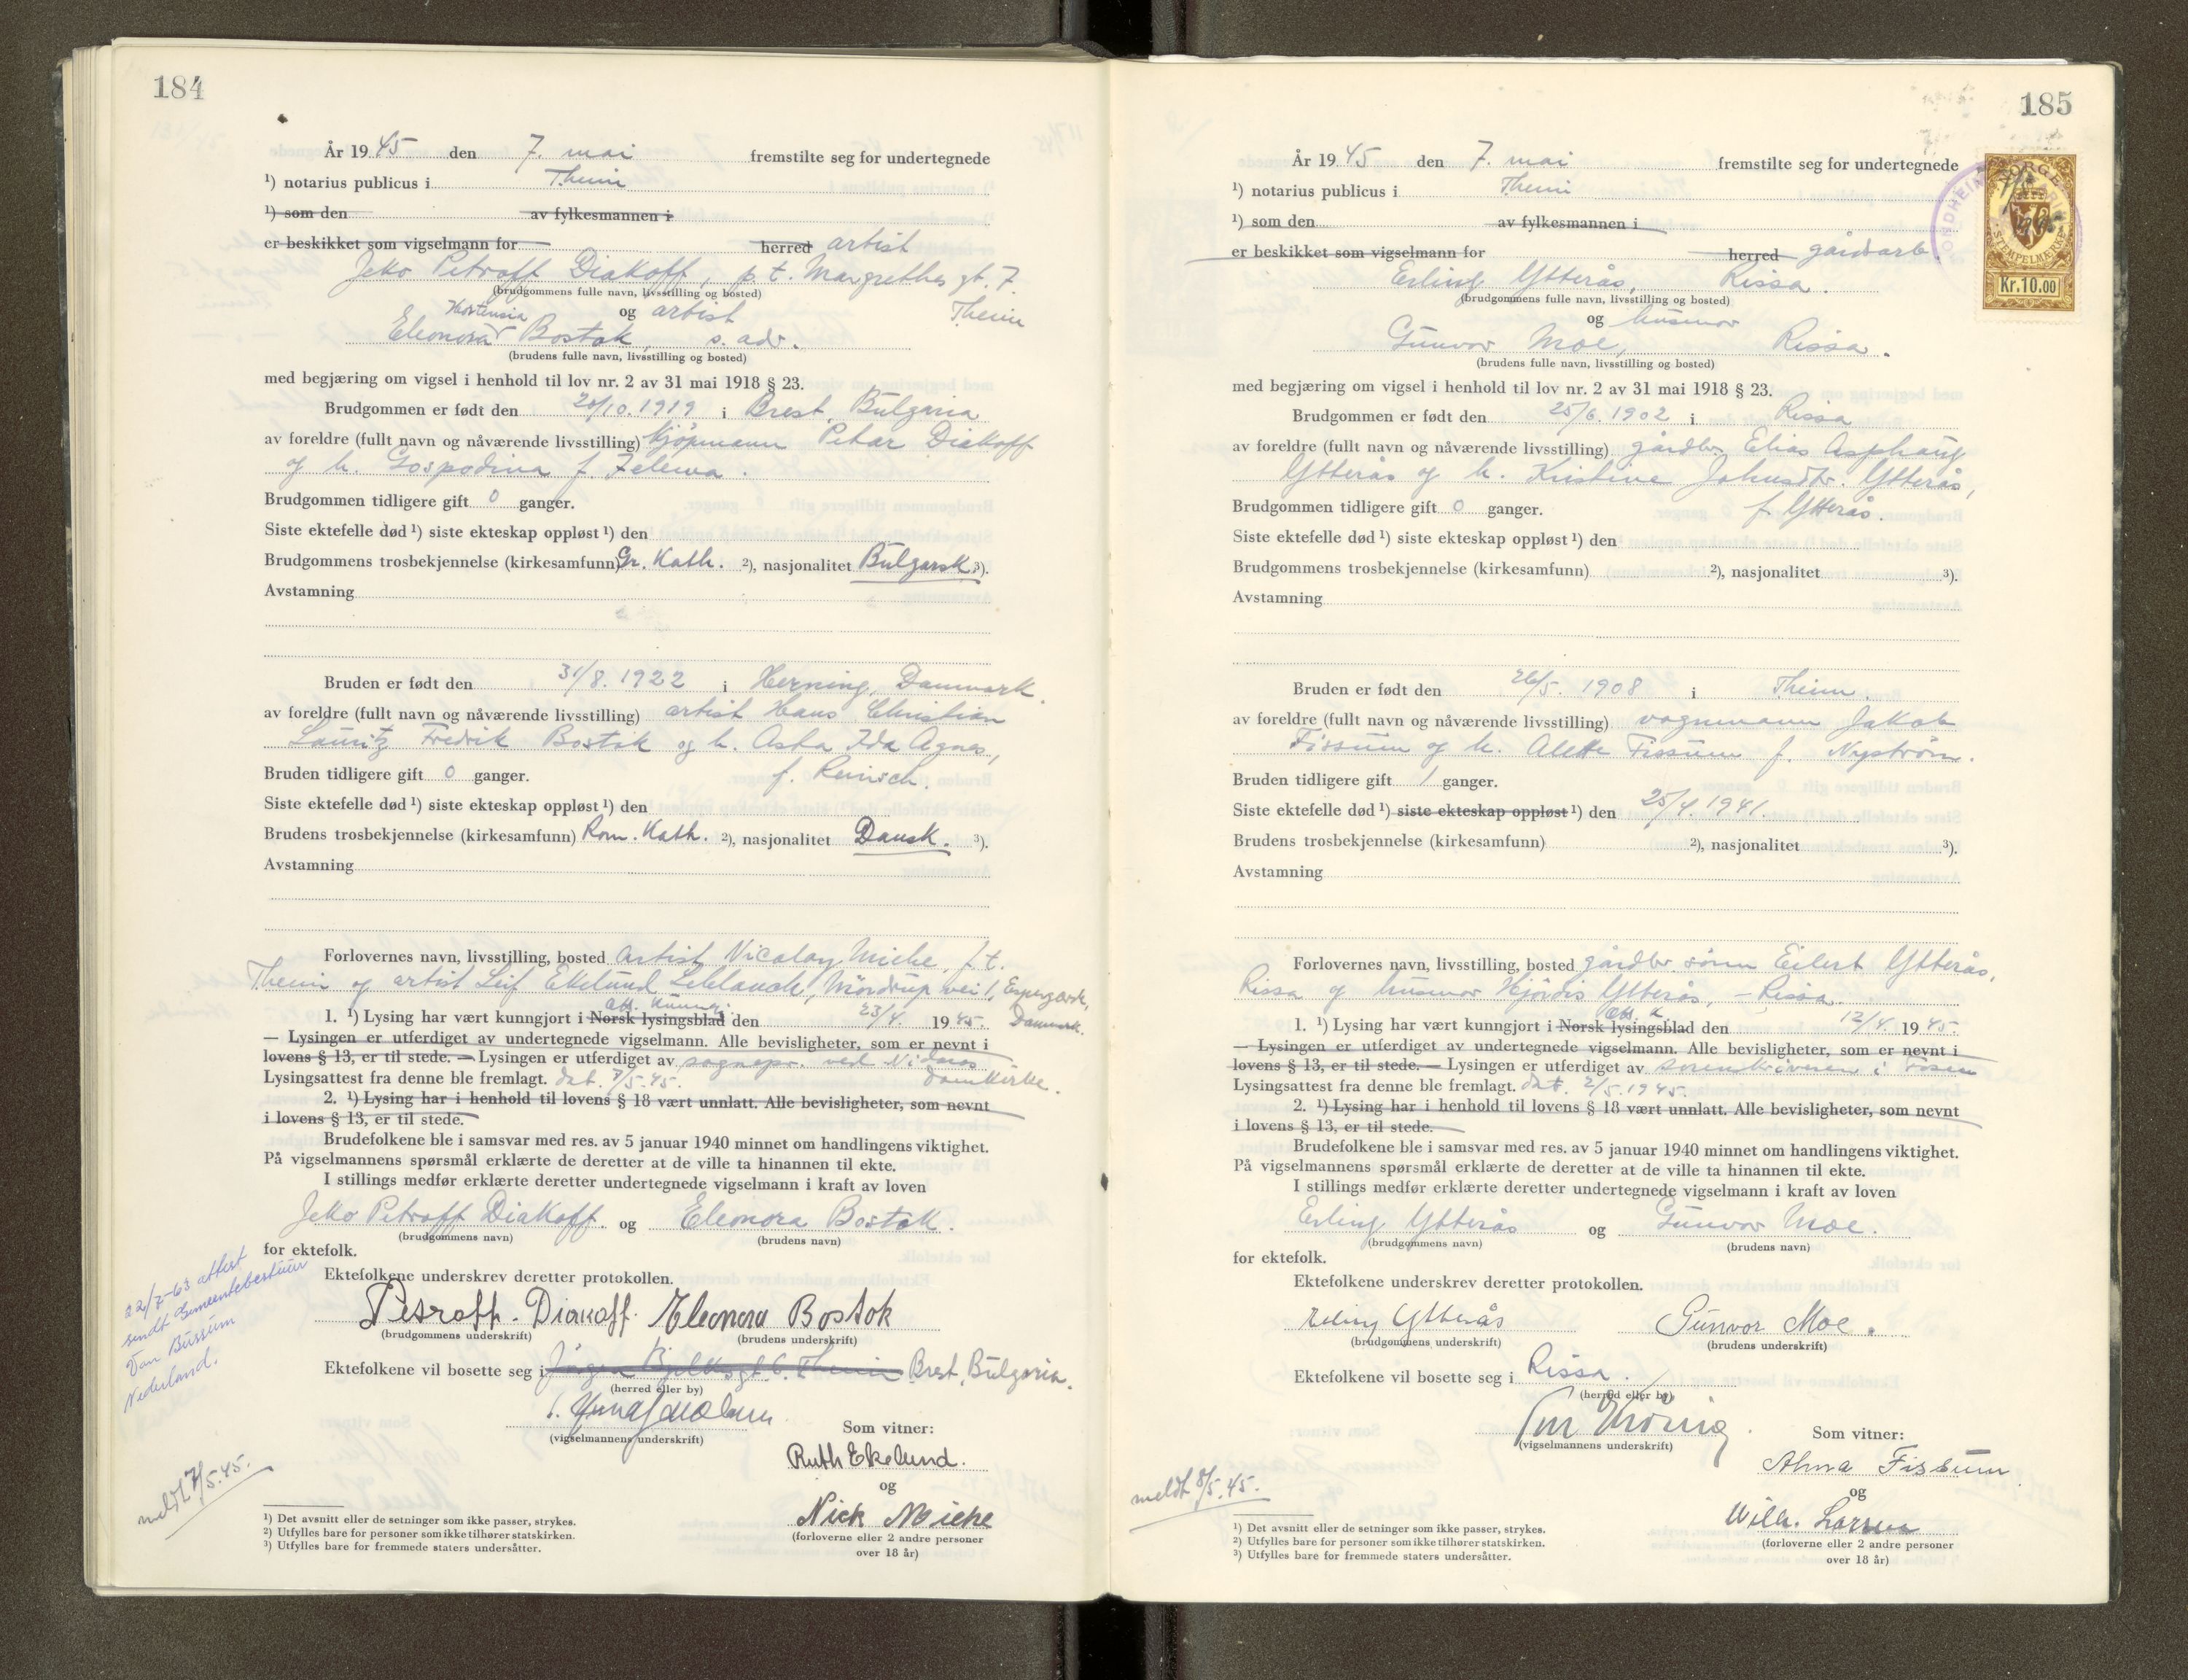 184
År 1945 den 7. mai fremstilte seg for undertegnede
¹) notarius publicus i Theim
¹) som den av fylkesmannen i
er beskikket som vigselmann for herred artist
Jeko Petroff Diakoff, p.t. Margrethes gt. 7
(brudgommens fulle navn, livsstilling og bosted)
Hortensia og artist Theim
Eleonora Bostok, s. adr.
(brudens fulle navn, livsstilling og bosted)
med begjæring om vigsel i henhold til lov nr. 2 av 31 mai 1918 § 23.
Brudgommen er født den 20/10. 1919 i Brest, Bulgaria
av foreldre (fullt navn og nåværende livsstilling) kjøpmann Petar Diakoff
og h. Gospodina f. Zelewa.
Brudgommen tidligere gift 0 ganger.
Siste ektefelle død ¹) siste ekteskap oppløst ¹) den
Brudgommens trosbekjennelse (kirkesamfunn) Gr. Kath. ²), nasjonalitet Bulgarsk ³).
Avstamning
Bruden er født den 31/8. 1922 i Herning, Danmark.
av foreldre (fullt navn og nåværende livsstilling) artist Hans Christian
Lauritz Fredrik Bostok og h. Asta Ida Agnes,
Bruden tidligere gift 0 ganger. f. Reinsch.
Siste ektefelle død ¹) siste ekteskap oppløst ¹) den
Brudens trosbekjennelse (kirkesamfunn) Rom. Kath. ²), nasjonalitet Dansk. ³).
Avstamning
Forlovernes navn, livsstilling, bosted artist Nicolay Miche, p.t.
Theim og artist Leif Ekelund, Mørdrup vei 1, Espergærde,
Danmark.
1. ¹) Lysing har vært kunngjort i Norsk lysingsblad den 23/4. 1945.
— Lysingen er utferdiget av undertegnede vigselmann. Alle bevisligheter, som er nevnt i
lovens § 13, er til stede. — Lysingen er utferdiget av sognepr. ved Nidaros
Lysingsattest fra denne ble fremlagt. dat. 7/5.45. Domkirke.
2. ¹) Lysing har i henhold til lovens § 18 vært unnlatt. Alle bevisligheter, som nevnt
i lovens § 13, er til stede.
Brudefolkene ble i samsvar med res. av 5 januar 1940 minnet om handlingens viktighet.
På vigselmannens spørsmål erklærte de deretter at de ville ta hinannen til ekte.
I stillings medfør erklærte deretter undertegnede vigselmann i kraft av loven
Jeko Petroff Diakoff og Eleonora Bostok.
(brudgommens navn) (brudens navn)
for ektefolk.
Ektefolkene underskrev deretter protokollen.
Petroff. Diakoff. Eleonora Bostok
(brudgommens underskrift) (brudens underskrift)
Ektefolkene vil bosette seg i Brest, Bulgaria.
(herred eller by)
(vigselmannens underskrift)
Som vitner:
Ruth Ekelund.
og
Nick Miche
(forloverne eller 2 andre personer
over 18 år)
22/7-63 attest
sendt Gemeentebestuur
Van Bussum
Nederland.
meldt 7/5.45.
¹) Det avsnitt eller de setninger som ikke passer, strykes.
²) Utfylles bare for personer som ikke tilhører statskirken.
³) Utfylles bare for fremmede staters undersåtter.
185
År 1945 den 7. mai fremstilte seg for undertegnede
¹) notarius publicus i Theim
¹) som den av fylkesmannen i
er beskikket som vigselmann for herred gårdarb.
Erling Ytterås, Rissa.
(brudgommens fulle navn, livsstilling og bosted)
og husmor
Gunvor Moe, Rissa.
(brudens fulle navn, livsstilling og bosted)
NORGE
STEMPELMERKE
Kr.10.00
med begjæring om vigsel i henhold til lov nr. 2 av 31 mai 1918 § 23.
Brudgommen er født den 25/6. 1902 i Rissa
av foreldre (fullt navn og nåværende livsstilling) gårdbr. Elias Asphaug
Ytterås og h. Kristine Johnsdtr. Ytterås,
Brudgommen tidligere gift 0 ganger. f. Ytterås.
Siste ektefelle død ¹) siste ekteskap oppløst ¹) den
Brudgommens trosbekjennelse (kirkesamfunn) ²), nasjonalitet ³).
Avstamning
Bruden er født den 26/5. 1908 i Theim.
av foreldre (fullt navn og nåværende livsstilling) vognmann Jakob
Fissum og h. Alette Fissum f. Nystrøm.
Bruden tidligere gift 1 ganger.
Siste ektefelle død ¹) siste ekteskap oppløst ¹) den 25/4. 1941.
Brudens trosbekjennelse (kirkesamfunn) ²), nasjonalitet ³).
Avstamning
Forlovernes navn, livsstilling, bosted gårdbr. sønn Eilert Ytterås,
Rissa og husmor Hjördis Ytterås, - Rissa.
1. ¹) Lysing har vært kunngjort i Norsk lysingsblad den 12/4 1945.
— Lysingen er utferdiget av undertegnede vigselmann. Alle bevisligheter, som er nevnt i
lovens § 13, er til stede. — Lysingen er utferdiget av sorenskriveren i Fosen
Lysingsattest fra denne ble fremlagt. dat. 2/5.1945.
2. ¹) Lysing har i henhold til lovens § 18 vært unnlatt. Alle bevisligheter, som nevnt
i lovens § 13, er til stede.
Brudefolkene ble i samsvar med res. av 5 januar 1940 minnet om handlingens viktighet.
På vigselmannens spørsmål erklærte de deretter at de ville ta hinannen til ekte.
I stillings medfør erklærte deretter undertegnede vigselmann i kraft av loven
Erling Ytterås og Gunvor Moe.
(brudgommens navn) (brudens navn)
for ektefolk.
Ektefolkene underskrev deretter protokollen.
Erling Ytterås Gunvor Moe.
(brudgommens underskrift) (brudens underskrift)
Ektefolkene vil bosette seg i Rissa.
(herred eller by)
(vigselmannens underskrift)
Som vitner:
Alma Fissum
og
Wilh. Larsen
(forloverne eller 2 andre personer
over 18 år)
meldt 8/5.45.
¹) Det avsnitt eller de setninger som ikke passer, strykes.
²) Utfylles bare for personer som ikke tilhører statskirken.
³) Utfylles bare for fremmede staters undersåtter.